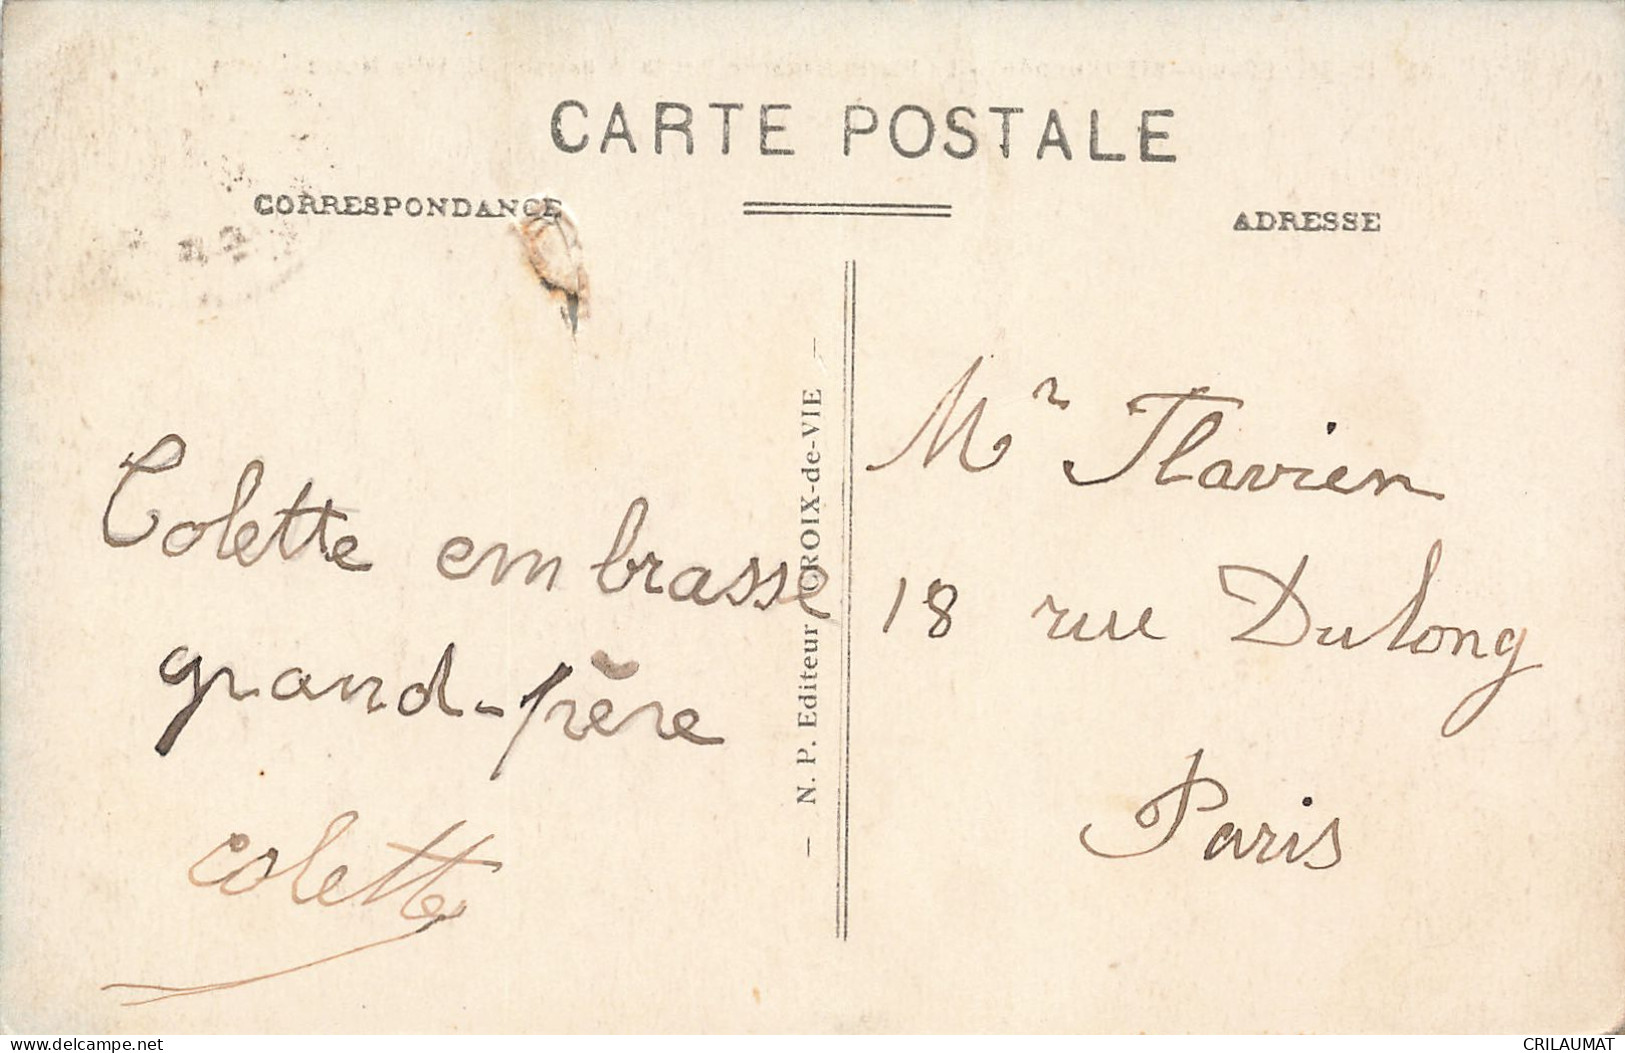 CARTE POSTALE
CORRESPONDANCE
ADRESSE
Colette embrasse
grand-père
colette
— N. P. Editeur CROIX-de-VIE —
Mr Flavien
18 rue Dulong
Paris
delcampe.net
CRILAUMAT